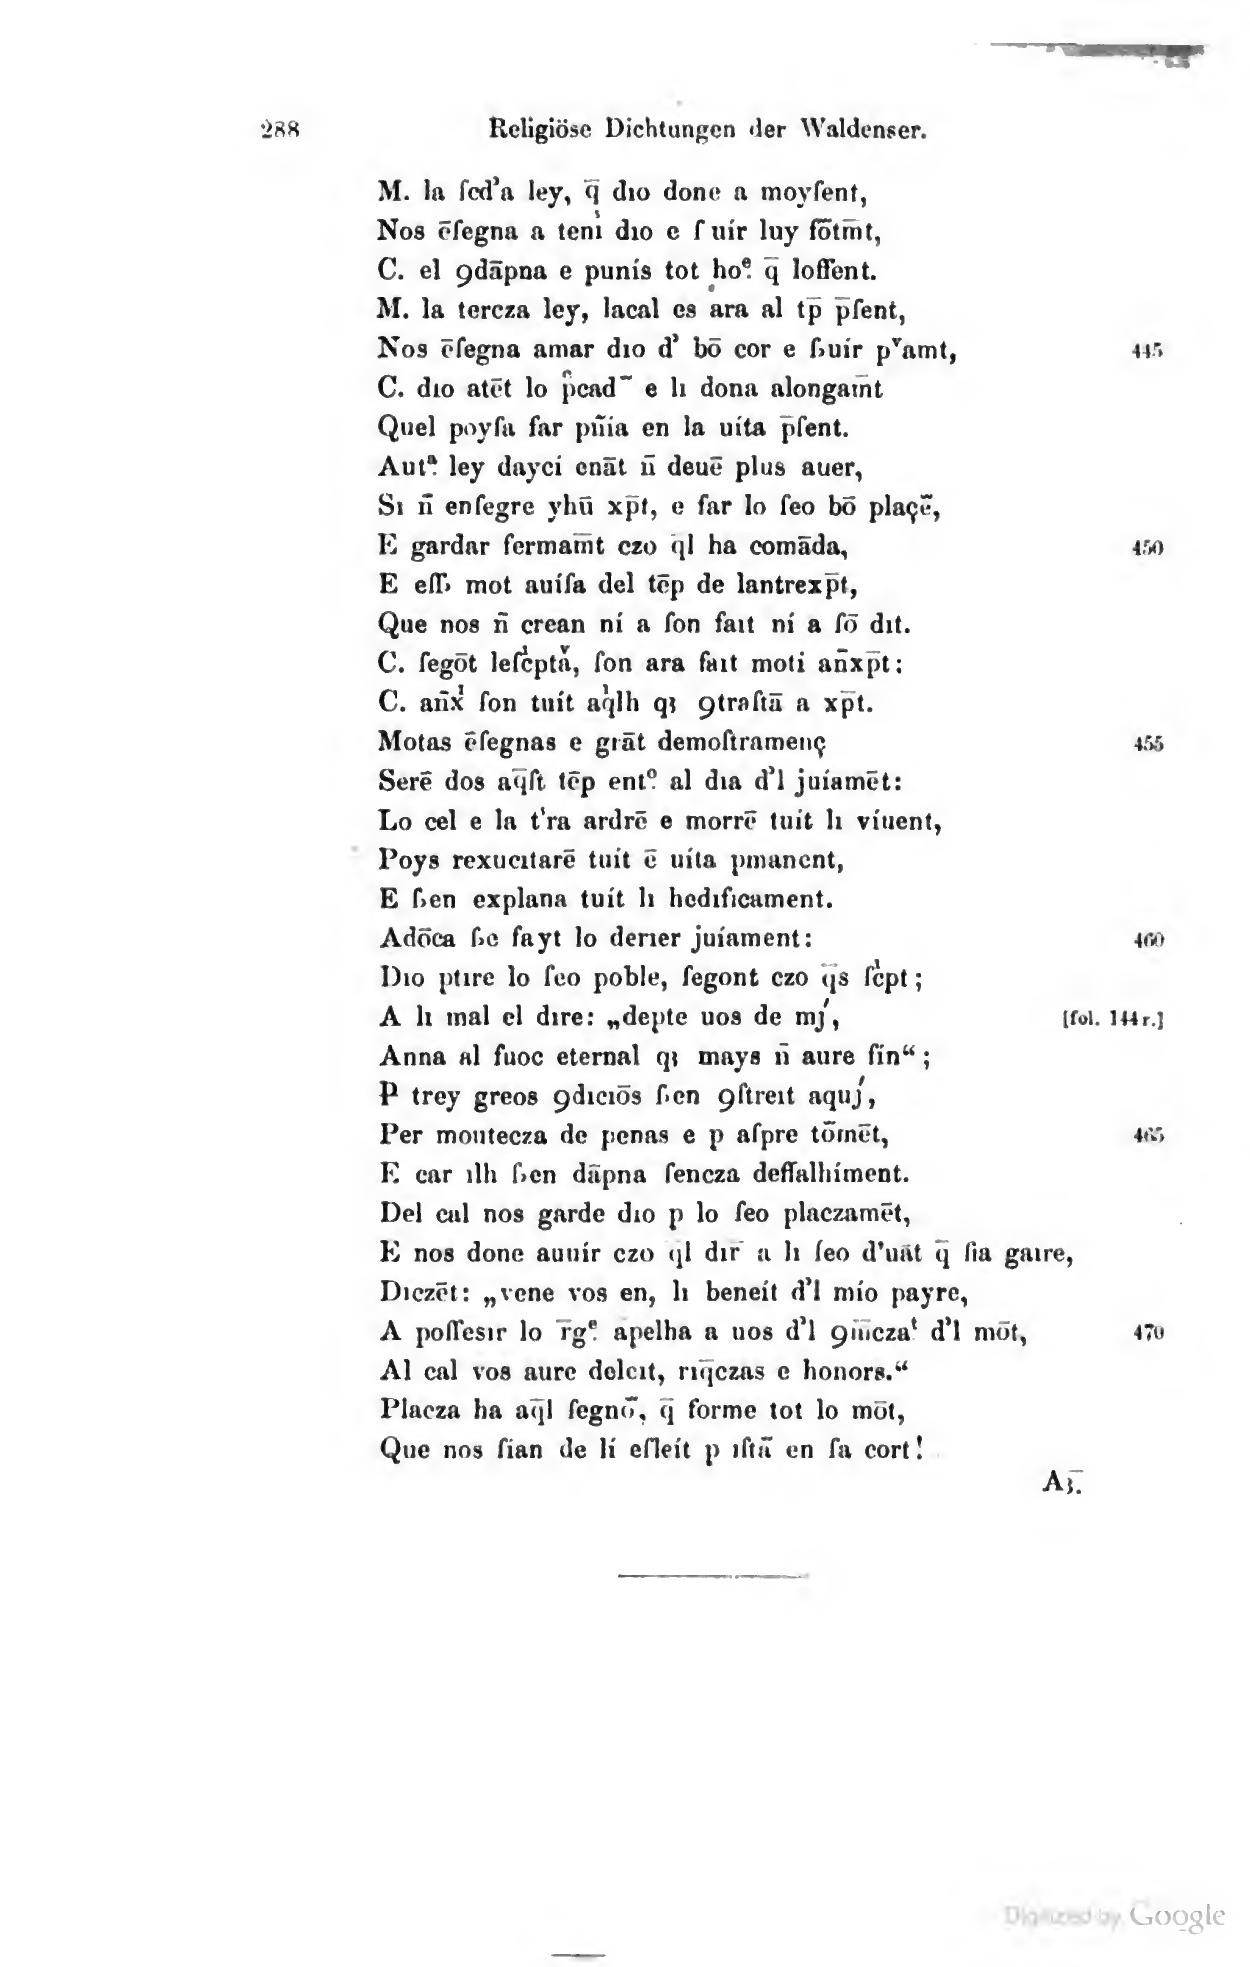 288 Religiöse Dichtungen der Waldenser.
M. la ſcd’a ley, q̄ dıo done a moyſent,
Nos ēſegna a teni dıo e ſuír luy fōtm̄t,
C. el ꝯdāpna e punís tot hoᵉ. q̄ loffent.
M. la tercza ley, lacal es ara al tp̄ p̄ſent,
Nos ēſegna amar dıo d’ bō cor e ẜuír pᵛamt, 445
C. dıo atēt lo p̄cad˜ e lı dona alongam̄t
Quel poyſa far pn̄ía en la uíta p̄ſent.
Autᵃ. ley daycí enāt n̄ deuē plus auer,
Sı n̄ enſegre yhū xp̄t, e far lo ſeo bō plaçē,
E gardar fermam̄t czo q̍l ha comāda, 450
E eſẜ mot auíſa del tēp de lantrexp̄t,
Que nos n̄ crean ní a ſon faıt ní a ſō dıt.
C. ſegōt leſcͥptāᵛ, ſon ara faıt moti an̄xp̄t:
C. an̄xͥ ſon tuít aq̍lh qꝫ ꝯtraſtā a xp̄t.
Motas ēſegnas e grāt demoſtramenç 455
Serē dos aq̄ſt tēp entᵒ. al dıa d’l juíamēt:
Lo cel e la t'ra ardrē e morrē tuit lı víuent,
Poys rexucıtarē tuít ē uíta pmanent,
E ẜen explana tuít lı hedıfıcament.
Adōca ẜe fayt lo derıer juíament: 460
Dıo ptıre lo ſeo poble, ſegont czo q̄s ſcͥpt;
A lı mal el dıre: „depte uos de mj́, [fol. 144 r.]
Anna al fuoc eternal qꝫ mays n̄ aure fín“;
P trey greos ꝯdıcıōs ẜen ꝯſtreıt aquj́,
Per montecza de penas e p aſpre tōrnēt, 465
E car ılh ẜen dāpna ſencza deffalhíment.
Del cal nos garde dıo p lo ſeo placzamēt,
E nos done auuír czo q̍l dır̄ a lı ſeo d’uāt q̄ ſia gaıre,
Dıczēt: „vene vos en, lı beneít d’l mío payre,
A poſſesır lo r̄gᵉ. apelha a uos d’l ꝯm̄czaᵗ d’l mōt, 470
Al cal vos aure deleıt, rıq̄czas e honors.“
Placza ha aq̄l ſegnō, q̄ forme tot lo mōt,
Que nos ſian de lí eſleít p ıſtā en ſa cort!
Aꝫ̄.
Digitized by Google